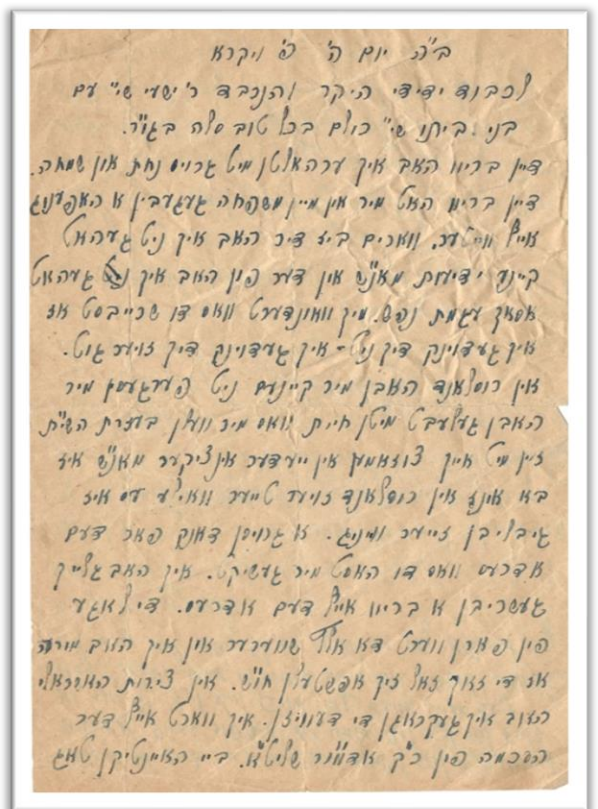 ב"ה יום ה' פ' ויקרא
לכבוד ידידי היקר והנכבד ר' ישעי' שי' עם
בני ביתו שי' כולם בכל טוב סלה בגו"ר.
דיין בריוו האב איך ערהאלטן מיט גרויס נחת און שמחה.
דיין בריוו האט מיר אין מיין משפחה געגעבין א האפענונג
אויף ווייטער. ווארים ביז דיר האב איך ניט געהאט
קיינע ידיעות מאנ"ש אין דער פון האב איך געהאט
אסאך עגמת נפש. מיך וואונדערט וואס דו שרייבסט אז
איך געדוינק דיך ניט - איך געדוינק דיך זויער גוט.
אין רוסלאנד האבן מיר קיינעם ניט פערגעסן מיר
האבן געלעבט מיטן חיות וואס מיר וועלן בעזרת השי"ת
זיין מיט אייך צוזאמען אין יעדער אינציקער מאנ"ש איז
בא אונז אין רוסלאנד זויער טייער ווארים עס איז
געבליבן זייער ווייניג. א גרויסן דאנק פאר דעם
אדרעס וואס דו האסט מיר געשיקט. איך האב גלייך
געשריבן א בריוו אויף דעם אדרעס. די לאגע
פין פארן ווערט דא אלץ שווערער אין איך האב מורא
אז די זאך זאל זיך אפשטעלן ח"ש. אין צירות האשראלי
האב איך געקראגן די דעוויזן. איך ווארט אויף דער
הסכמה פין כ"ק אדמו"ר שליט"א. ביי היינטיקן טאג